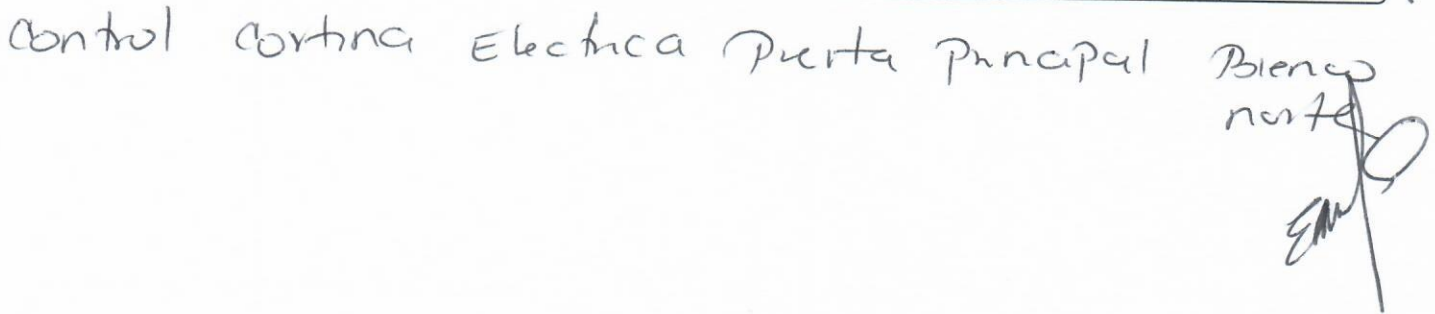 Control Cortina Electrica Puerta Principal Bienco
norte